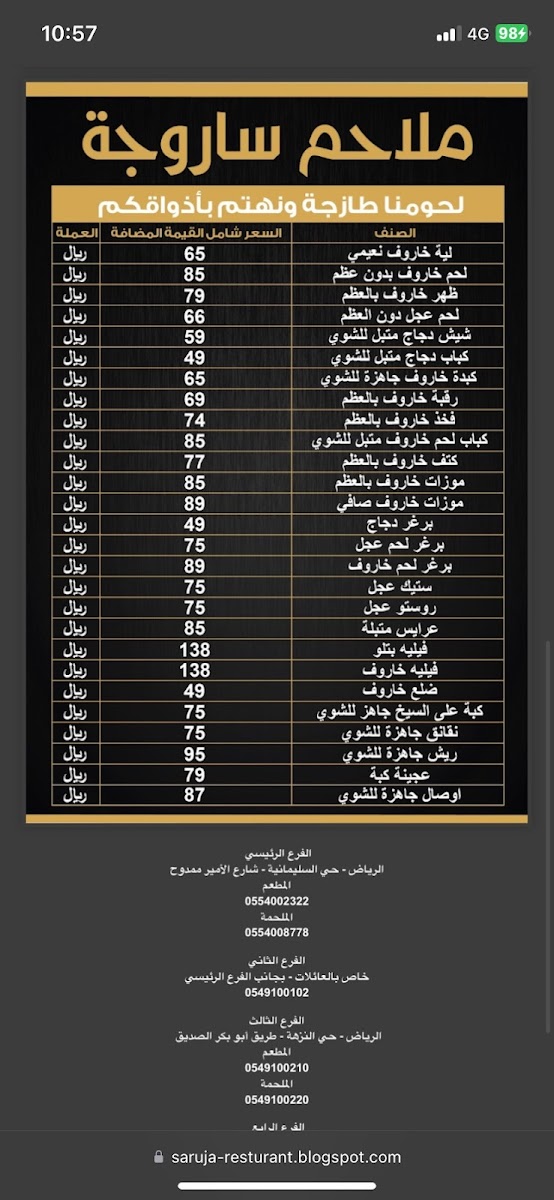 10:57
4G 98
ملاحم ساروجة
لحومنا طازجة ونهتم بأذواقكم
الصنف السعر شامل القيمة المضافة العملة
لية خاروف نعيمي 65 ريال
لحم خاروف بدون عظم 85 ريال
ظهر خاروف بالعظم 79 ريال
لحم عجل دون العظم 66 ريال
شيش دجاج متبل للشوي 59 ريال
كباب دجاج متبل للشوي 49 ريال
كبدة خاروف جاهزة للشوي 65 ريال
رقبة خاروف بالعظم 69 ريال
فخذ خاروف بالعظم 74 ريال
كباب لحم خاروف متبل للشوي 85 ريال
كتف خاروف بالعظم 77 ريال
موزات خاروف بالعظم 85 ريال
موزات خاروف صافي 89 ريال
برغر دجاج 49 ريال
برغر لحم عجل 75 ريال
برغر لحم خاروف 89 ريال
ستيك عجل 75 ريال
روستو عجل 75 ريال
عرايس متبلة 85 ريال
فيليه بتلو 138 ريال
فيليه خاروف 138 ريال
ضلع خاروف 49 ريال
كبة على السيخ جاهز للشوي 75 ريال
نقانق جاهزة للشوي 75 ريال
ريش جاهزة للشوي 95 ريال
عجينة كبة 79 ريال
اوصال جاهزة للشوي 87 ريال
الفرع الرئيسي
الرياض - حي السليمانية - شارع الأمير ممدوح
المطعم
0554002322
الملحمة
0554008778
الفرع الثاني
خاص بالعائلات - بجانب الفرع الرئيسي
0549100102
الفرع الثالث
الرياض - حي النزهة - طريق أبو بكر الصديق
المطعم
0549100210
الملحمة
0549100220
الفرع الرابع
saruja-resturant.blogspot.com